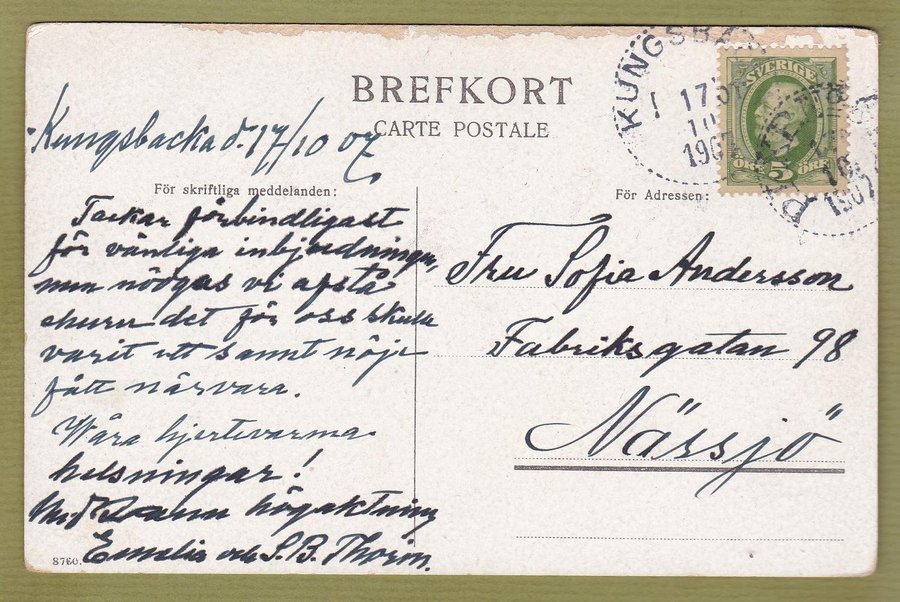 BREFKORT
CARTE POSTALE
KUNGSBAC
17
10
1907
SVERIGE
5
ÖRE ÖRE
1907
Kungsbacka d. 17/10 07.
För skriftliga meddelanden:
Tackar förbindligast
för vänliga inbjudningen,
men nödgas vi afstå
ehuru det för oss skulle
varit ett sannt nöje
fått närvara.
Wåra hjertevarma
helsningar!
Med sann högaktning
Emelie och S. B. Thorin.
8760.
För Adressen:
Fru Sofia Andersson
Fabriksgatan 98
Nässjö